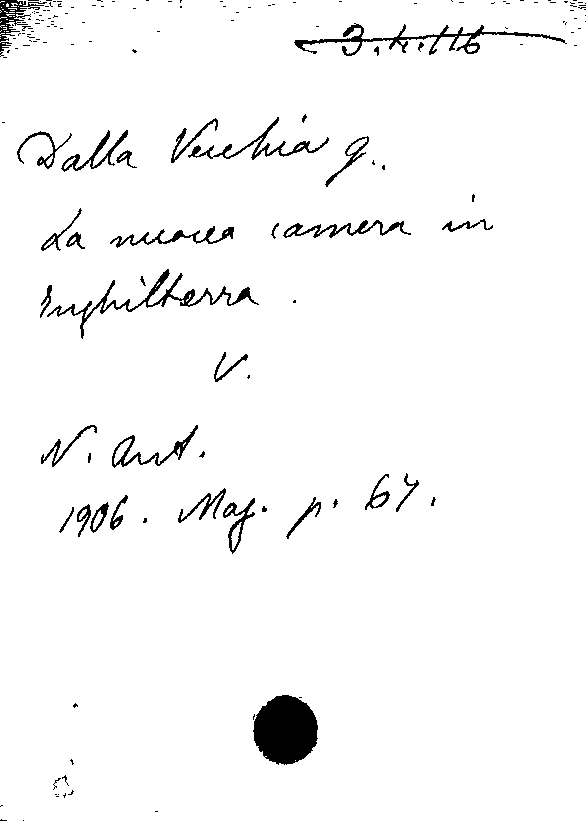 3.4.116
Dalla Vecchia G.
La nuova camera in
Inghilterra.
V.
N. Ant.
1906. Mag. p. 67.